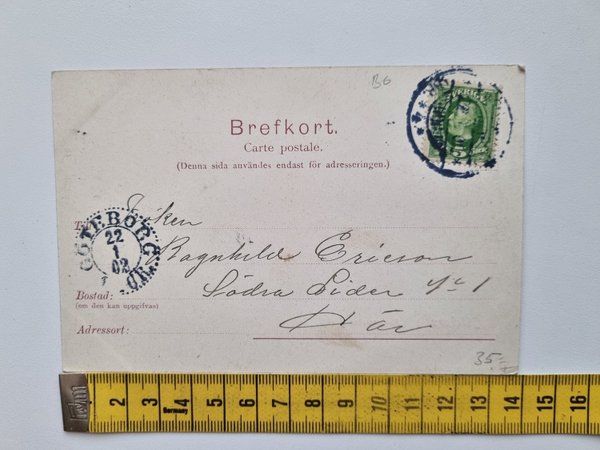 B6
SVERIGE
Brefkort.
Carte postale.
(Denna sida användes endast för adresseringen.)
Fröken
GÖTEBORG
22
1
03
Ragnhild Ericson
Bostad:
Södra Liden No 1
(om den kan uppgifvas)
Här
Adressort:
35:-
2 3 4 5 6 7 8 9 10 11 12 13 14 15 16
Germany